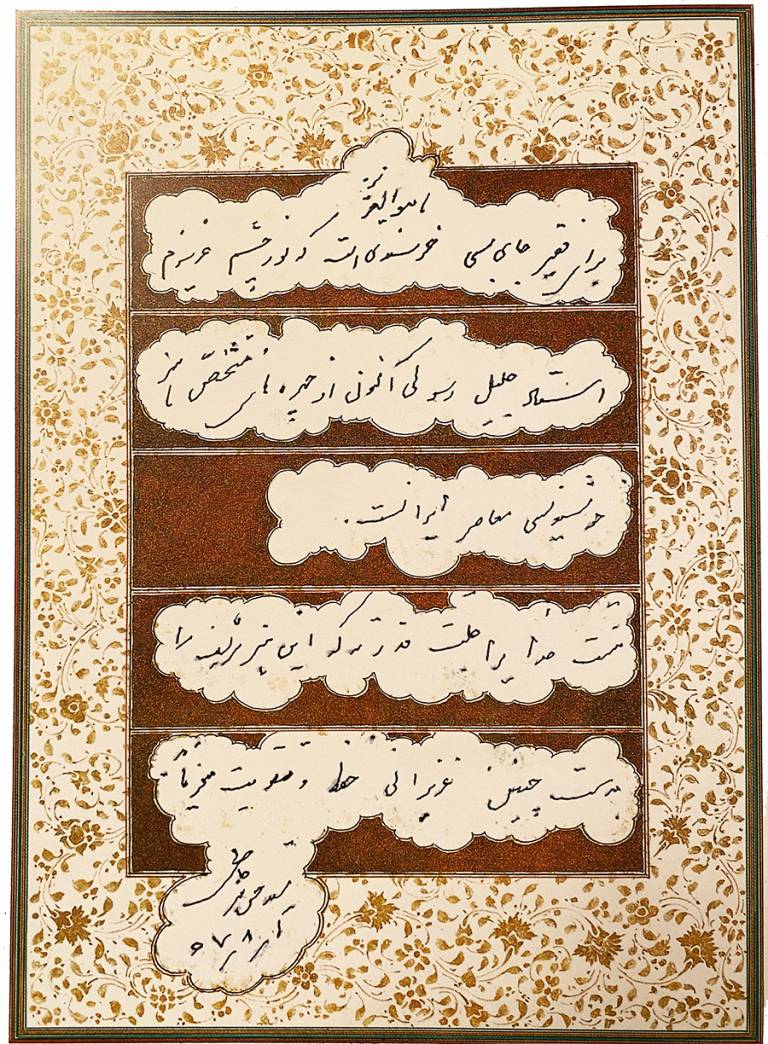 هوالعزیز
برای فقیر جای بسی خرسندی است که نور چشم عزیزم
استاد جلیل رسولی اکنون از چهره‌های مشخص
خوشنویسی معاصر ایرانست.
منت خدا را جلت قدرته که این هنر شریف را
بدست چنین عزیزانی حفظ و تقویت میفرماید
سید حسن